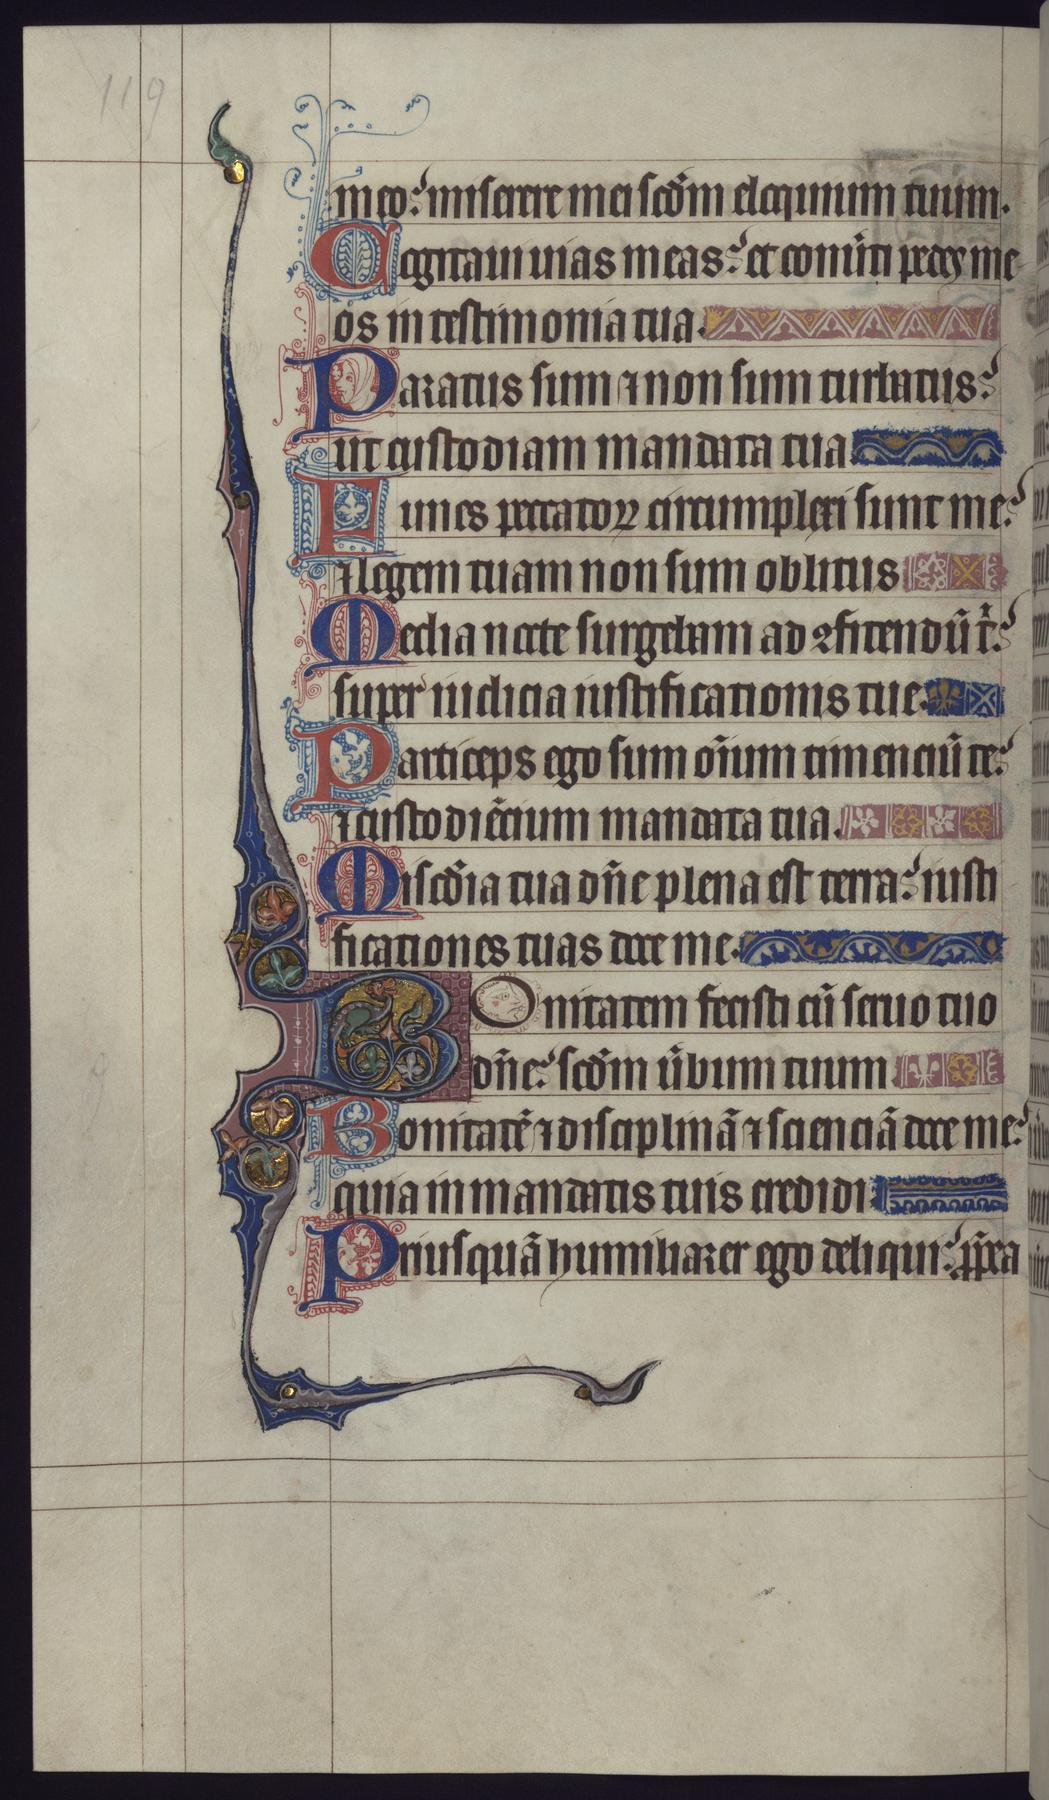 119
meo: miserere mei scd̄m eloquium tuum.
Cogitaui uias meas: et conu̾ti pedes me
os in testimonia tua.
Paratus sum ⁊ non sum turbatus:
ut custodiam mandata tua.
Funes peccatoꝝ circumplexi sunt me:
⁊ legem tuam non sum oblitus
Media nocte surgebam ad ꝯfitendū t̾:
super iudicia iustificationis tue.
Particeps ego sum om̄ium timenciū te:
⁊ custodiēcium mandata tua.
Mis̄cdia tua dn̄e plena est terra: iusti
ficationes tuas doce me.
BOnitatem fecisti cū seruo tuo
dn̄e: scd̄m u̾bum tuum
Bonitatē ⁊ disciplinā ⁊ scienciā doce me:
quia in mandatis tuis credidi
Priusquā humiliarer ego deliqui: ꝓpt̾ea